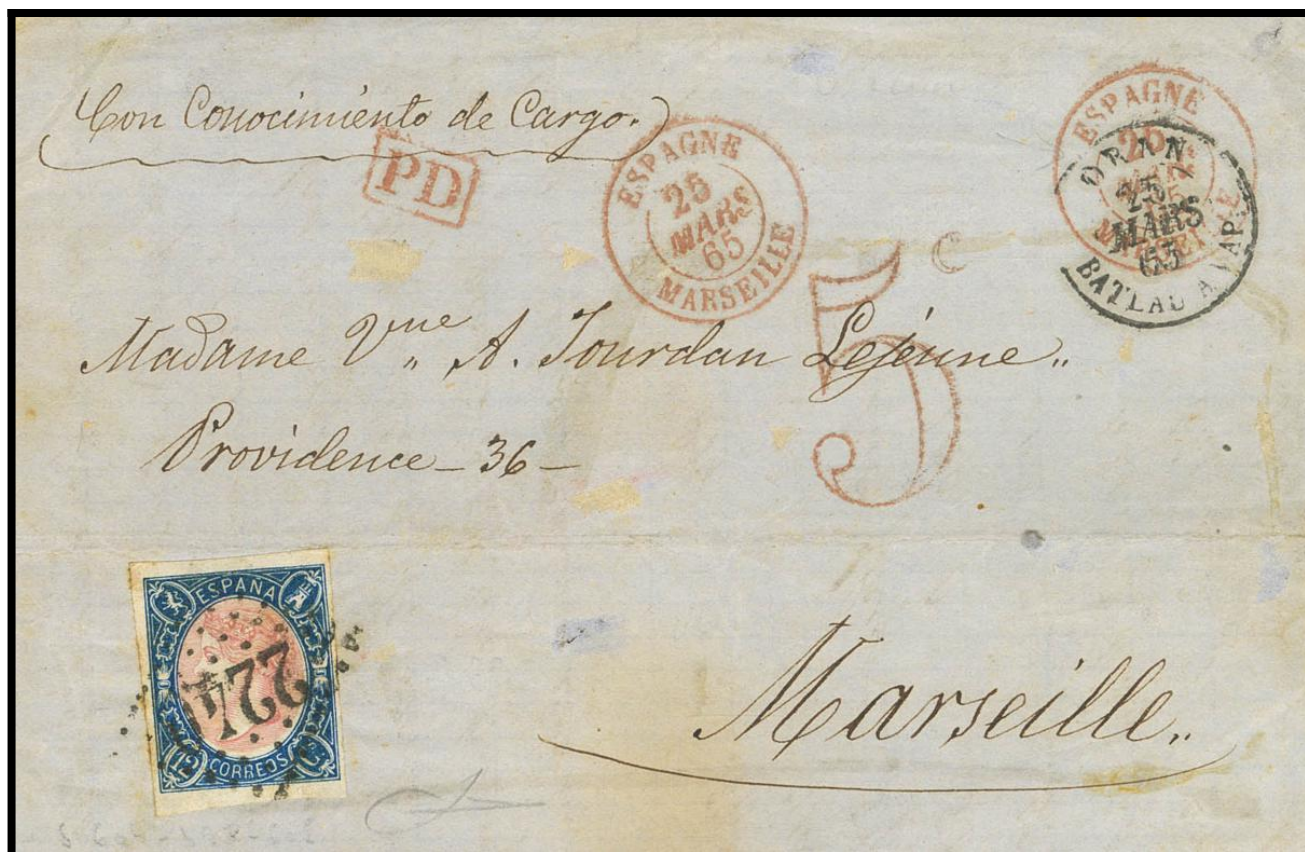 Con Conocimiento de Cargo.
PD
ESPAGNE
25
MARS
65
MARSEILLE
ESPAGNE
ORAN
25
MARS
65
BATEAU A VAP.
5 c
Madame Vve A. Jourdan Lejeune
Providence - 36 -
Marseille
ESPAÑA
2240
12 CORREOS Cs